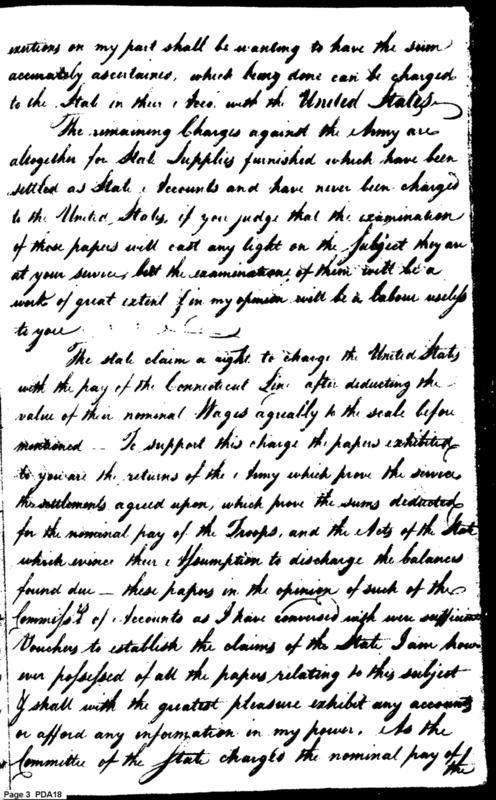 exertions on my part shall be wanting to have the sum
accurately ascertained, which being done can be charged
to the State in their Acco. with the United States
The remaining Charges against the Army are
altogether for State Supplies furnished which have been
settled as State Accounts and have never been charged
to the United States, if you judge that the examination
of those papers will cast any light on the Subject they are
at your service, but the examination of them will be a
work of great extent & in my opinion will be a labour useless
to you
The state claim a right to charge the United States
with the pay of the Connecticut Line after deducting the
value of their nominal Wages agreably to the scale before
mentioned — To support this charge the papers exhibited
to you are the returns of the Army which prove the service
the settlements agreed upon, which prove the sums deducted
for the nominal pay of the Troops, and the Acts of the State
which evince their Assumption to discharge the balances
found due — these papers in the opinion of such of the
Commissrs. of Accounts as I have conversed with were sufficient
Vouchers to establish the claims of the State, I am how
ever possessed of all the papers relating to this subject
& shall with the greatest pleasure exhibit any accounts
or afford any information in my power. As the
Committee of the State charges the nominal pay of
the
Page 3 PDA18